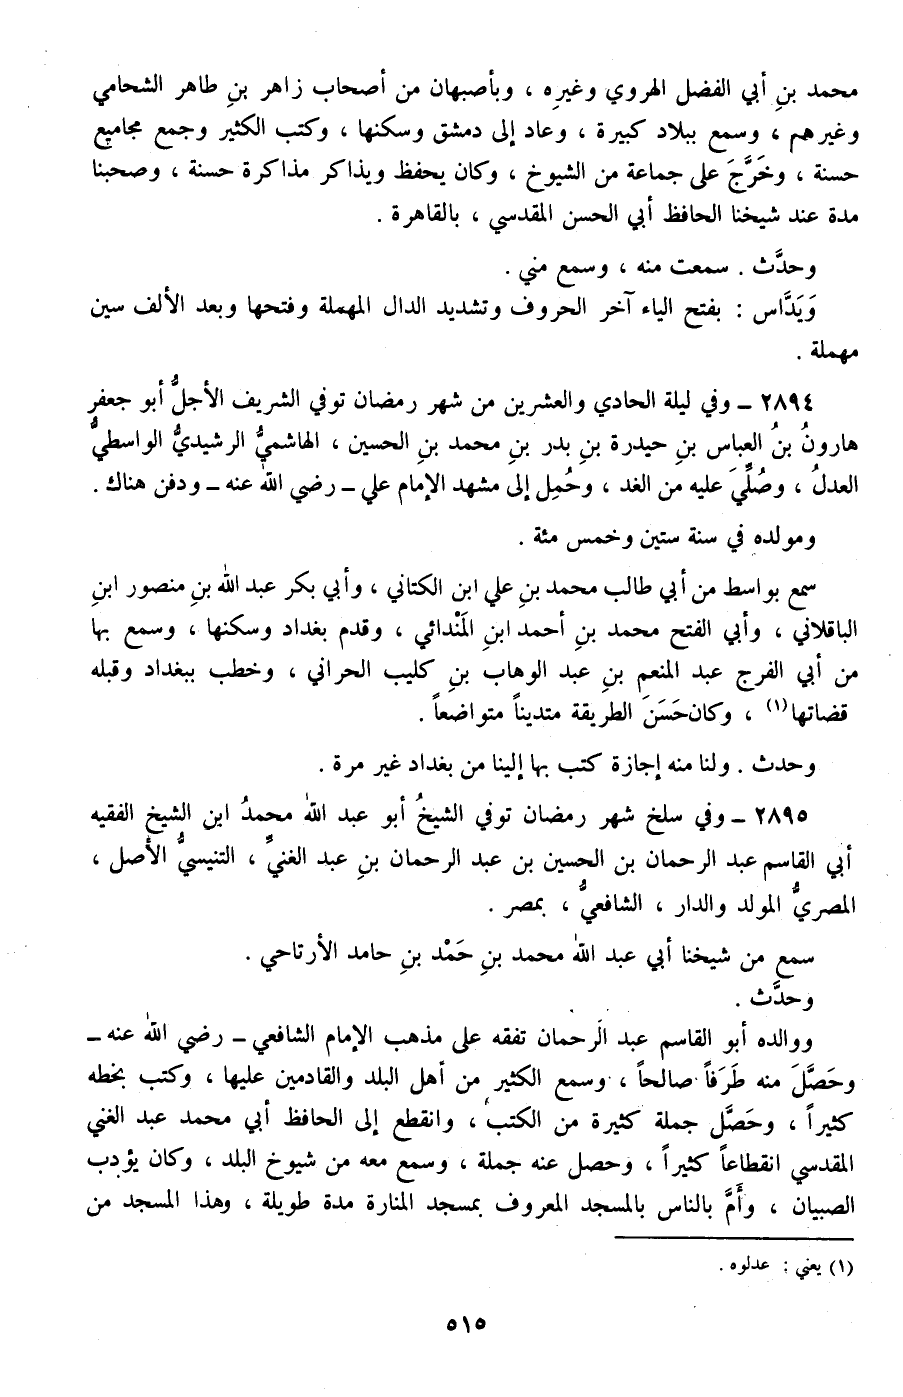 محمد بنِ أبي الفضل الهروي وغيرِه ، وبأصبهان من أصحاب زاهر بنِ طاهر الشحامي
وغيرهم ، وسمع ببلاد كبيرة ، وعاد إلى دمشق وسكنها ، وكتب الكثير وجمع مجاميع
حسنة ، وخَرَّجَ على جماعة من الشيوخ ، وكان يحفظ ويذاكر مذاكرة حسنة ، وصحبنا
مدة عند شيخنا الحافظ أبي الحسن المقدسي ، بالقاهرة .
وحدَّث . سمعت منه ، وسمع مني .
وَيَدَّاس : بفتح الياء آخر الحروف وتشديد الدال المهملة وفتحها وبعد الألف سين
مهملة .
٢٨٩٤ ــ وفي ليلة الحادي والعشرين من شهر رمضان توفي الشريف الأجلُّ أبو جعفرٍ
هارونُ بنُ العباس بنِ حيدرة بنِ بدر بنِ محمد بنِ الحسين ، الهاشميُّ الرشيديُّ الواسطيُّ
العدلُ ، وصُلِّيَ عليه من الغد ، وحُمِل إلى مشهد الإمام علي ــ رضي الله عنه ــ ودفن هناك .
ومولده في سنة ستين وخمس مئة .
سمع بواسط من أبي طالب محمد بنِ علي ابن الكتاني ، وأبي بكر عبد الله بنِ منصور ابنِ
الباقلاني ، وأبي الفتح محمد بنِ أحمد ابنِ المَنْدائي ، وقدم بغداد وسكنها ، وسمع بها
من أبي الفرج عبد المنعم بنِ عبد الوهاب بنِ كليب الحراني ، وخطب ببغداد وقبله
قضاتها(١) ، وكان حَسَنَ الطريقة متديناً متواضعاً .
وحدث . ولنا منه إجازة كتب بها إلينا من بغداد غير مرة .
٢٨٩٥ ــ وفي سلخ شهر رمضان توفي الشيخُ أبو عبد الله محمدُ ابن الشيخ الفقيه
أبي القاسم عبد الرحمان بن الحسين بن عبد الرحمان بنِ عبد الغنيِّ ، التنيسيُّ الأصل ،
المصريُّ المولد والدار ، الشافعيُّ ، بمصر .
سمع من شيخنا أبي عبد الله محمد بنِ حَمْد بنِ حامد الأرتاحي .
وحدَّث .
ووالده أبو القاسم عبد الرحمان تفقه على مذهب الإمام الشافعي ــ رضي الله عنه ــ
وحَصَّلَ منه طَرَفاً صالحاً ، وسمع الكثير من أهل البلد والقادمين عليها ، وكتب بخطه
كثيراً ، وحَصَّل جملة كثيرة من الكتب ، وانقطع إلى الحافظ أبي محمد عبد الغني
المقدسي انقطاعاً كثيراً ، وحصل عنه جملة ، وسمع معه من شيوخ البلد ، وكان يؤدب
الصبيان ، وأَمَّ بالناس بالمسجد المعروف بمسجد المنارة مدة طويلة ، وهذا المسجد من
(١) يعني : عدلوه .
٥١٥